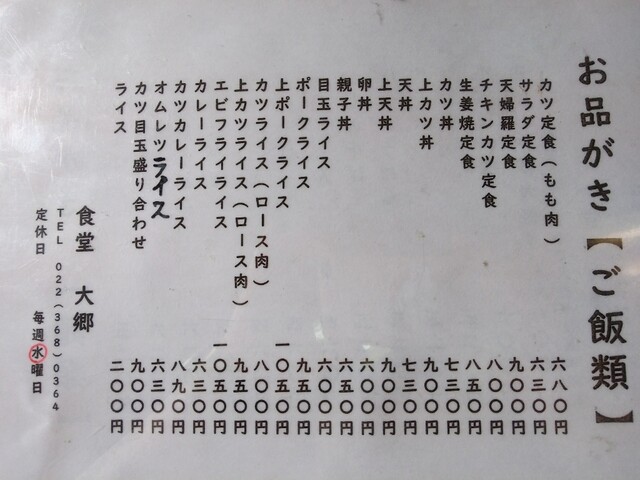 お品がき【ご飯類】
カツ定食(もも肉) 六八〇円
サラダ定食 六三〇円
天婦羅定食 九〇〇円
チキンカツ定食 八〇〇円
生姜焼定食 八五〇円
カツ丼 七三〇円
上カツ丼 九〇〇円
天丼 七三〇円
上天丼 九〇〇円
卵丼 六〇〇円
親子丼 六五〇円
目玉ライス 六〇〇円
ポークライス 九〇〇円
上ポークライス 一〇五〇円
カツライス(ロース肉) 八〇〇円
上カツライス(ロース肉) 九五〇円
エビフライライス 一〇五〇円
カレーライス 六三〇円
カツカレーライス 八九〇円
オムレツライス 六三〇円
カツ目玉盛り合わせ 九〇〇円
ライス 二〇〇円
食堂 大郷
TEL 022(368)0364
定休日 毎週水曜日